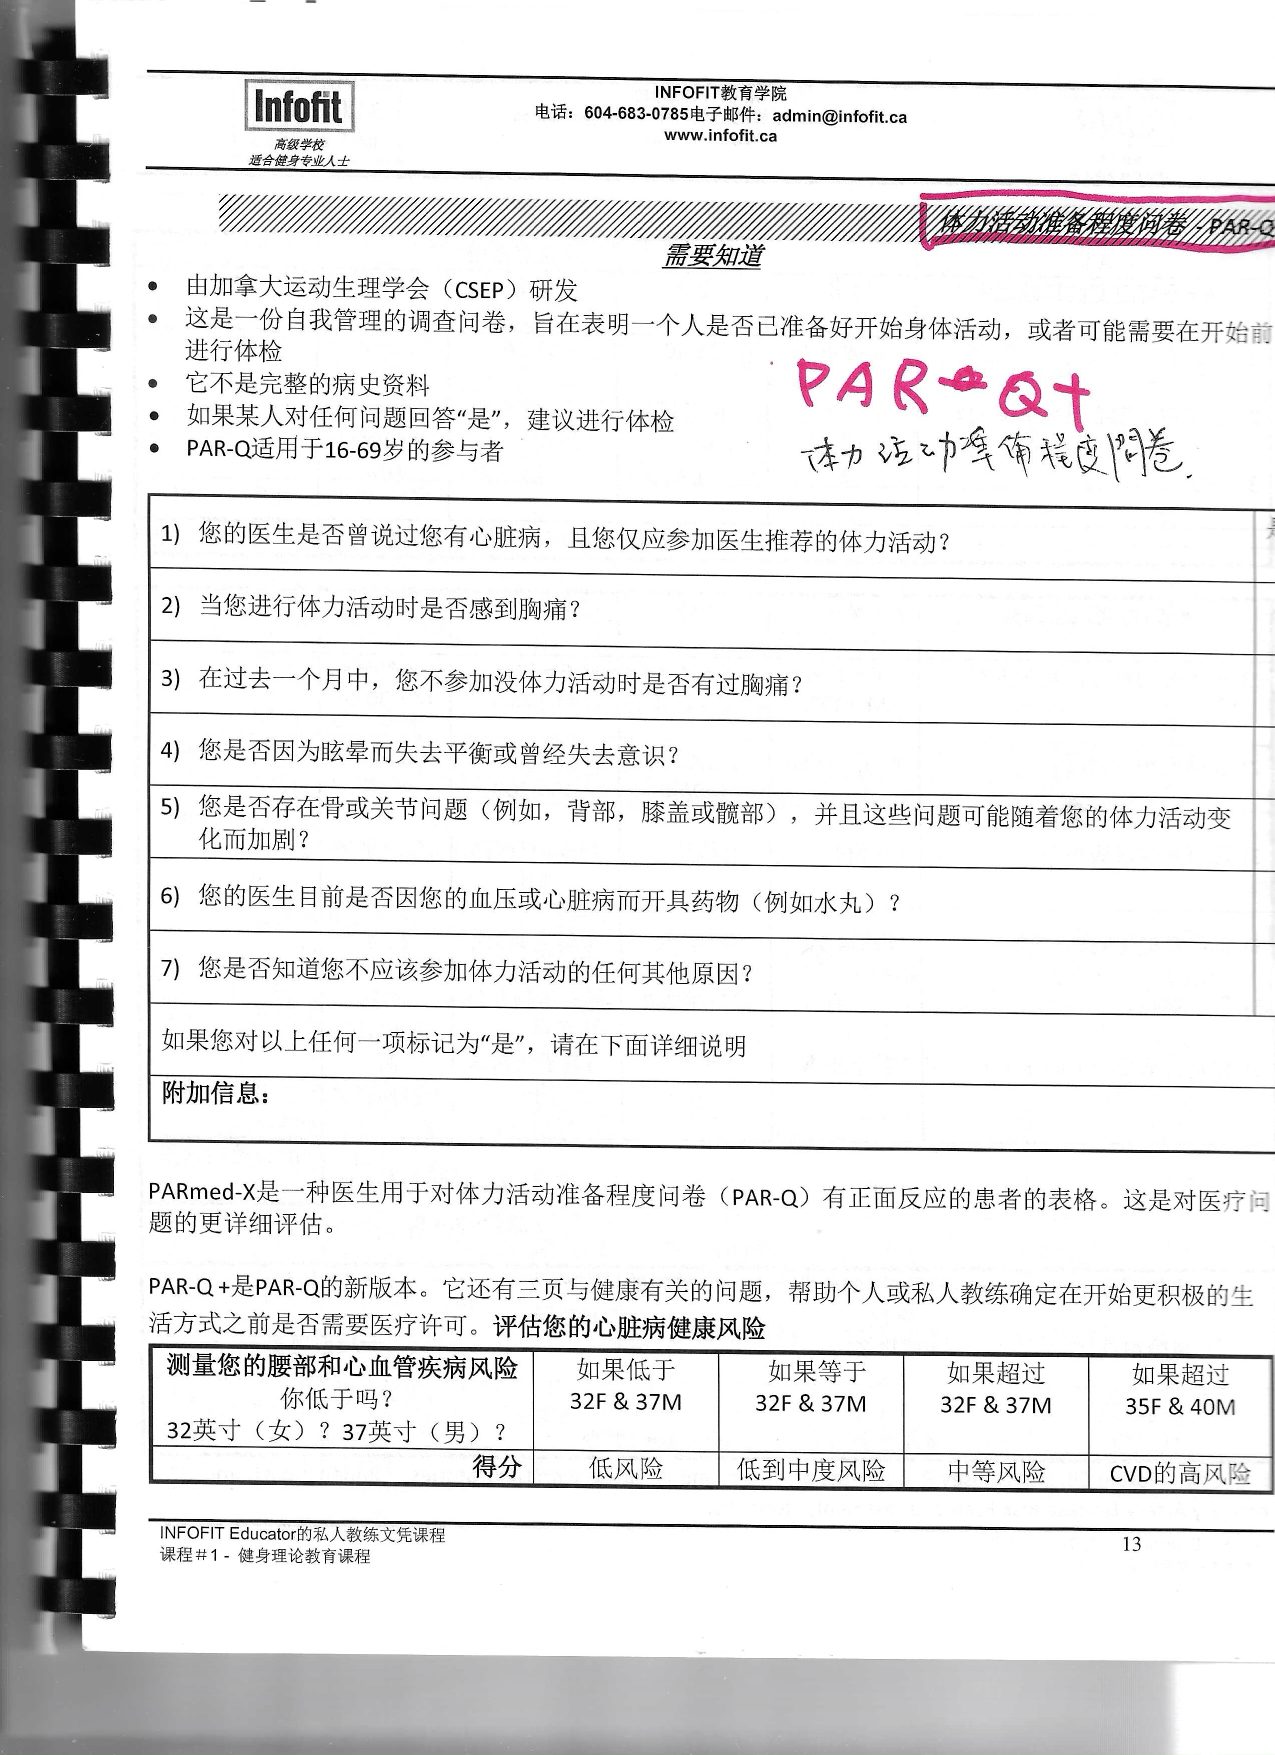 Infofit
高级学校
适合健身专业人士
INFOFIT教育学院
电话：604-683-0785电子邮件：admin@infofit.ca
www.infofit.ca
体力活动准备程度问卷 - PAR-Q
需要知道
• 由加拿大运动生理学会（CSEP）研发
• 这是一份自我管理的调查问卷，旨在表明一个人是否已准备好开始身体活动，或者可能需要在开始前
进行体检
• 它不是完整的病史资料
• 如果某人对任何问题回答“是”，建议进行体检
• PAR-Q适用于16-69岁的参与者
PAR-Q+
体力活动準備程度問卷.
1) 您的医生是否曾说过您有心脏病，且您仅应参加医生推荐的体力活动？
2) 当您进行体力活动时是否感到胸痛？
3) 在过去一个月中，您不参加没体力活动时是否有过胸痛？
4) 您是否因为眩晕而失去平衡或曾经失去意识？
5) 您是否存在骨或关节问题（例如，背部，膝盖或髋部），并且这些问题可能随着您的体力活动变
化而加剧？
6) 您的医生目前是否因您的血压或心脏病而开具药物（例如水丸）？
7) 您是否知道您不应该参加体力活动的任何其他原因？
如果您对以上任何一项标记为“是”，请在下面详细说明
附加信息：
PARmed-X是一种医生用于对体力活动准备程度问卷（PAR-Q）有正面反应的患者的表格。这是对医疗问
题的更详细评估。
PAR-Q +是PAR-Q的新版本。它还有三页与健康有关的问题，帮助个人或私人教练确定在开始更积极的生
活方式之前是否需要医疗许可。评估您的心脏病健康风险
测量您的腰部和心血管疾病风险
你低于吗？
32英寸（女）？37英寸（男）？
如果低于
32F & 37M
如果等于
32F & 37M
如果超过
32F & 37M
如果超过
35F & 40M
得分 低风险 低到中度风险 中等风险 CVD的高风险
INFOFIT Educator的私人教练文凭课程
课程＃1 - 健身理论教育课程
13